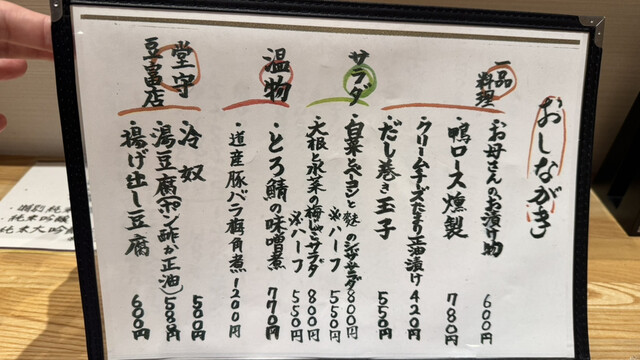 おしながき
一品料理
・お母さんのお漬け物 600円
・鴨ロース燻製 780円
・クリームチーズたまり正油漬け 420円
・だし巻き玉子 550円
サラダ
・白菜とベーコンと麩のシーザーサラダ 800円
※ハーフ 550円
・大根と水菜の梅じそサラダ 800円
※ハーフ 550円
温物
・とろ鯖の味噌煮 770円
・道産豚バラ軟角煮 1200円
堂守豆富店
・冷奴 500円
・湯豆腐(ポン酢か正油) 580円
・揚げ出し豆腐 600円
純米
純米吟醸
純米大吟